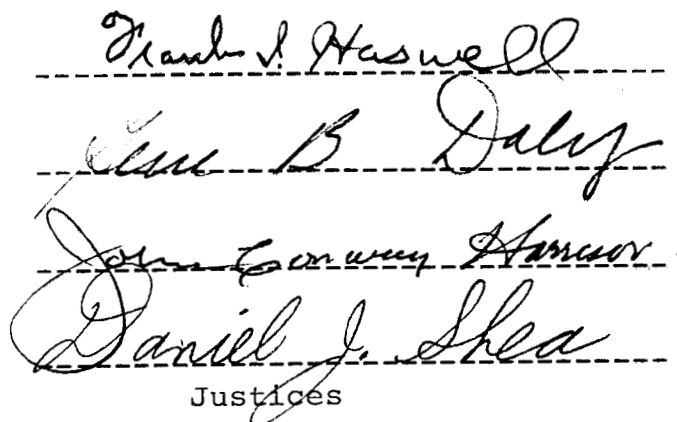 Frank I. Haswell
Gene B Daly
John Conway Harrison
Daniel J. Shea
Justices